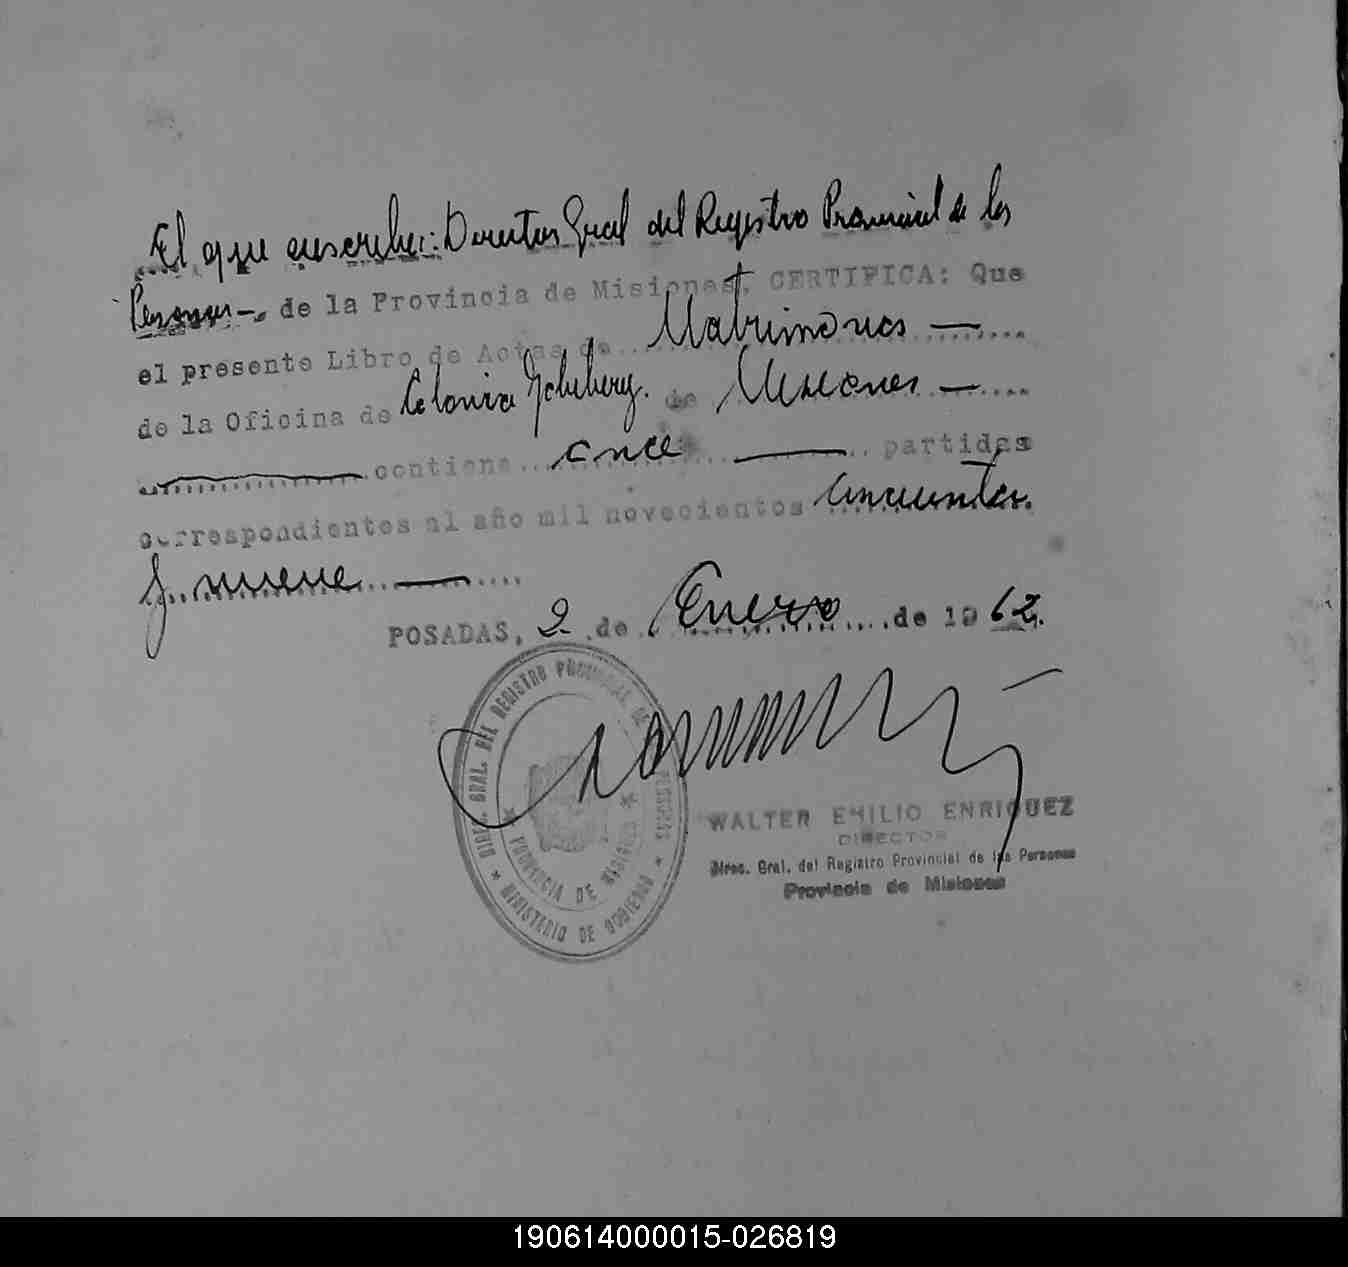 El que suscribe: Director Gral del Registro Provincial de las
Personas —. de la Provincia de Misiones, CERTIFICA: Que
el presente Libro de Actas de Matrimonios —
de la Oficina de Colonia de Misiones —
contiene once — partidas
correspondientes al año mil novecientos cincuenta
y nueve —
POSADAS, 2 de Enero de 1962.
DIREC. GRAL. DEL REGISTRO PROVINCIAL DE LAS PERSONAS
* MINISTERIO DE GOBIERNO *
* PROVINCIA DE MISIONES *
WALTER EMILIO ENRIQUEZ
DIRECTOR
Direc. Gral. del Registro Provincial de las Personas
Provincia de Misiones
190614000015-026819